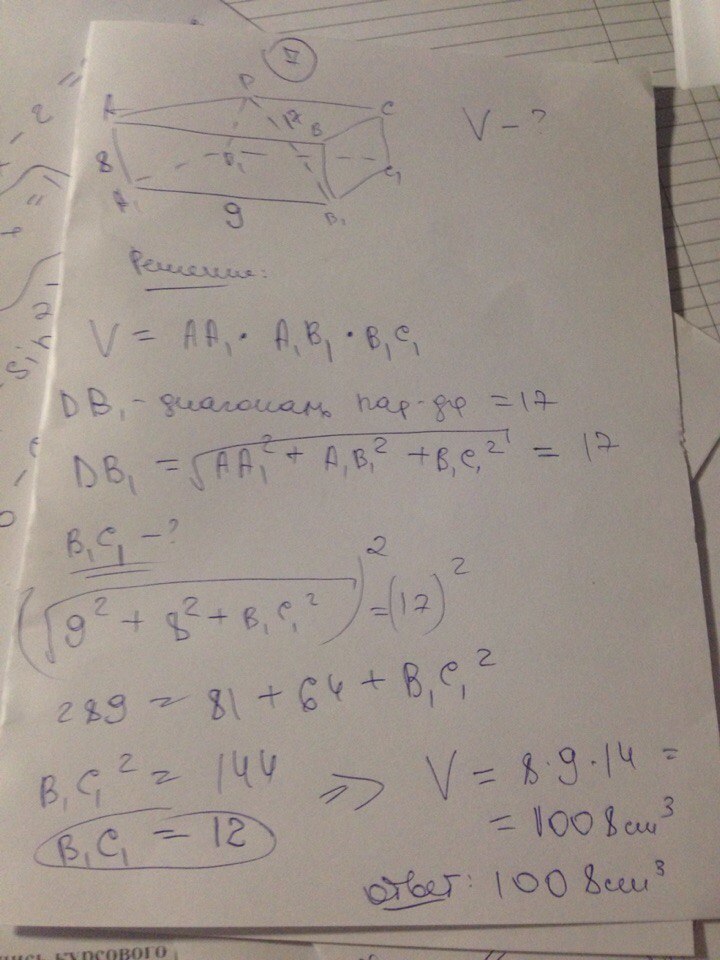 II
D
A
C
17
B
V - ?
8
D₁
C₁
A₁
B₁
9
Решение:
V = AA₁ · A₁B₁ · B₁C₁
DB₁ - диагональ пар-да = 17
DB₁ = √(AA₁² + A₁B₁² + B₁C₁²) = 17
B₁C₁ - ?
(√(9² + 8² + B₁C₁²))² = (17)²
289 = 81 + 64 + B₁C₁²
B₁C₁² = 144 => V = 8 · 9 · 14 =
B₁C₁ = 12
= 1008 см³
Ответ: 1008 см³
курсового